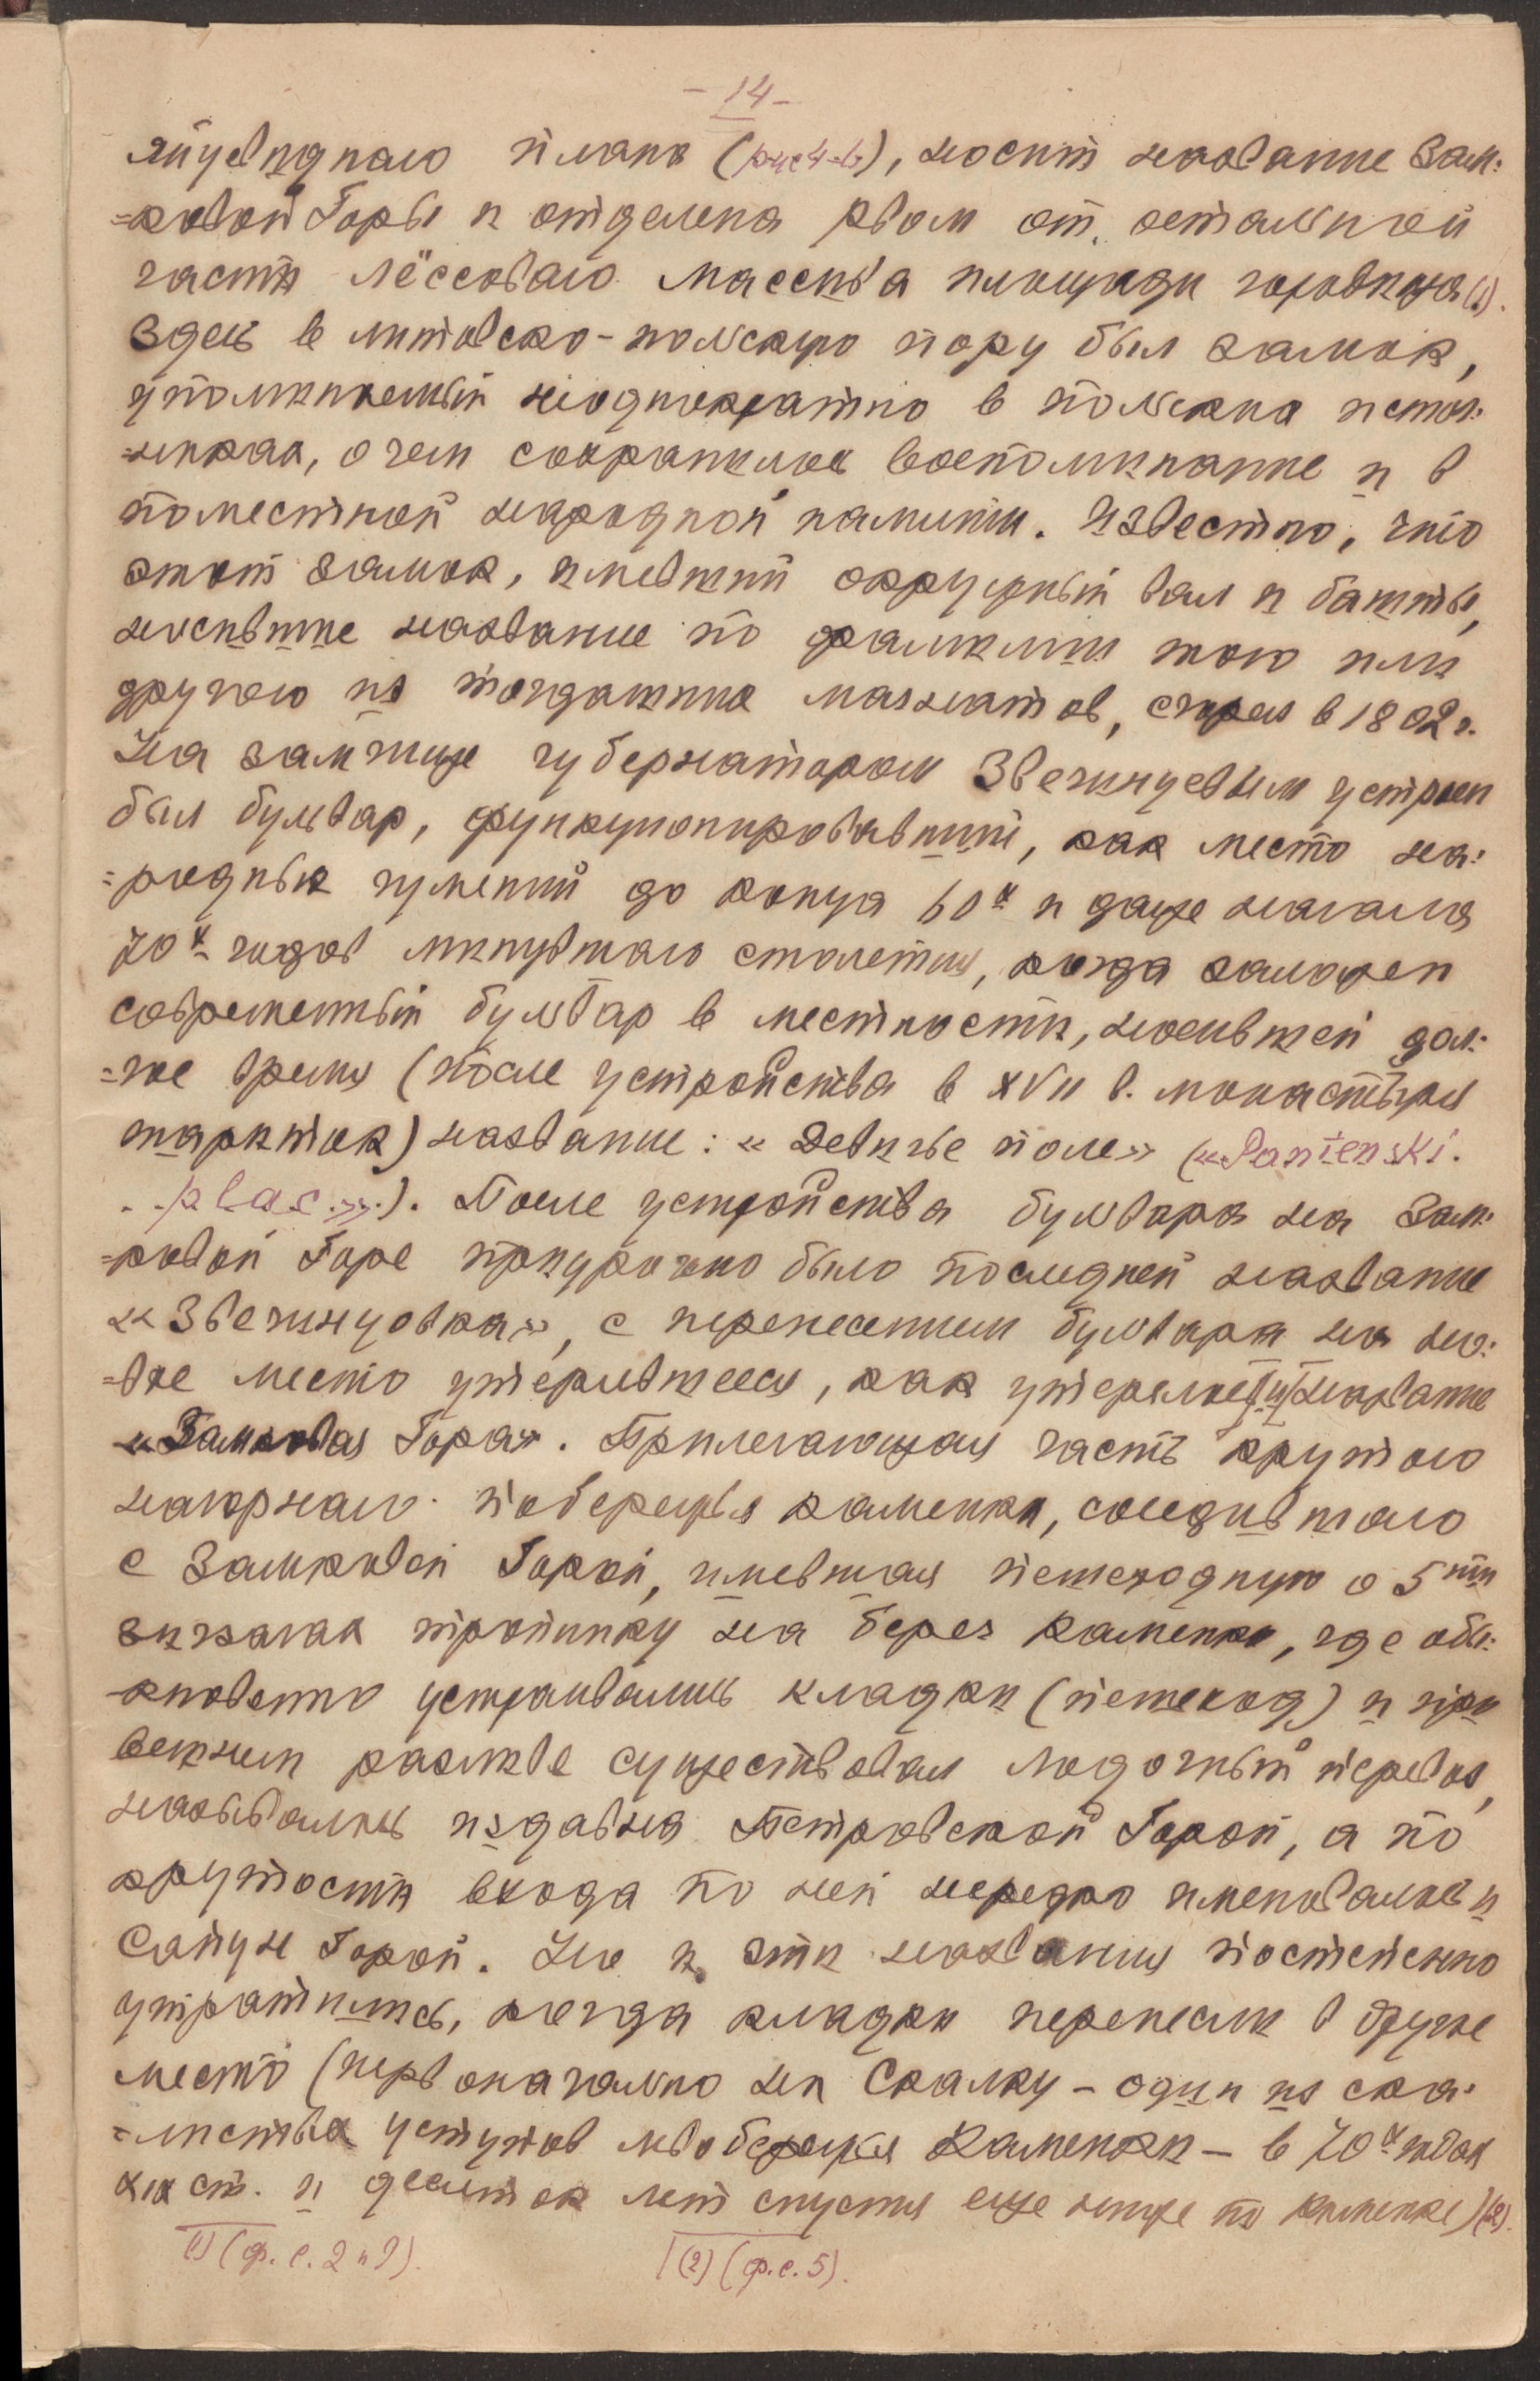 - 14 -
яйцевиднаго плана (рис 4-й), носит название Зам-
=ковой Горы и отделена рвом от остальной
части лёссоваго массива площади городища (1).
Здесь в литовско-польскую пору был замок,
упоминаемый неоднократно в польских источ-
=никах, о чем сохранилось воспоминание и в
поместной народной памяти. Известно, что
этот замок, имевший окружный вал и башты,
носившие название по фамилии того или
другого из тогдашних магнатов, сгорел в 1802 г.
На замчище губернатором Звегинцевым устроен
был бульвар, функционировавший, как место на-
=родных гуляний до конца 60х и даже начала
70х годов минувшаго столетия, когда заложен
современный бульвар в местности, носившей дол-
=гое время (после устройства в XVII в. монастыря
шариток) название: « Девичье поле» («Panienski
plac»). После устройства бульвара на Зам-
=ковой Горе приурочено было последней название
«Звегинцовка», с перенесением бульвара на но-
=вое место утерявшееся, как утерялось и название
«Замковая Гора». Прилегающая часть крутого
нагорнаго побережья Каменки, соседившаго
с Замковой Горой, имевшая пешеходную о 5ти
зигзагах тропинку на берег Каменки, где обы-
=кновенно устраивались кладки (пешеход) и при
вешнем разливе существовал лодочный перевоз,
называлась издавна Петровской Горой, а по
крутости входа по ней нередко именовалось и
Сапун Горой. Но и эти названия постепенно
утратились, когда кладки перенесли в другое
место (первоначально на Скалку - один из ска-
=листых уступов левобережья Каменки - в 70х годах
XIX ст. и десяток лет спустя еще ниже по Каменке) (2).
(1) (ф. с. 2 и 9).
(2) (ф. с. 5).